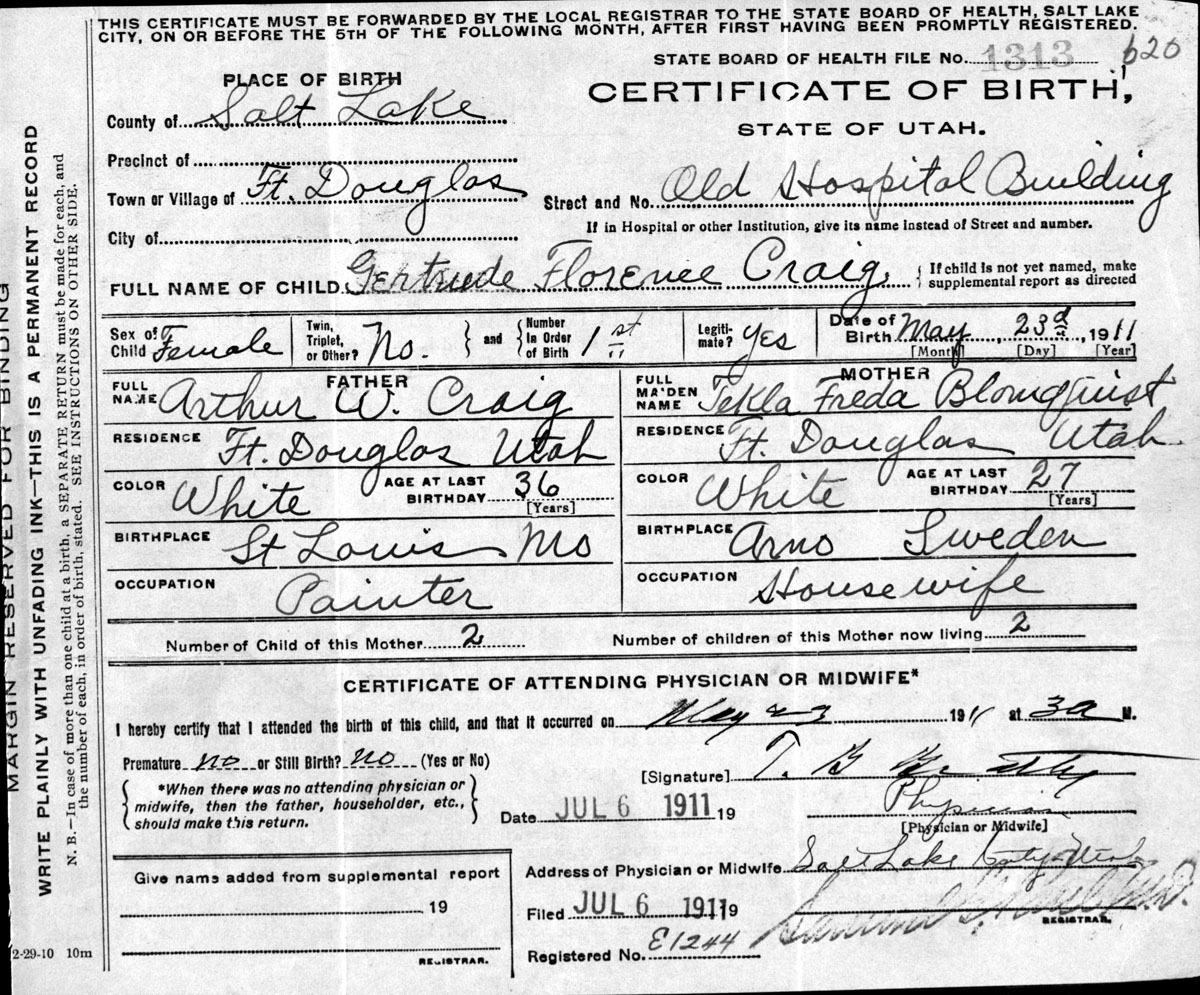 THIS CERTIFICATE MUST BE FORWARDED BY THE LOCAL REGISTRAR TO THE STATE BOARD OF HEALTH, SALT LAKE
CITY, ON OR BEFORE THE 5TH OF THE FOLLOWING MONTH, AFTER FIRST HAVING BEEN PROMPTLY REGISTERED.
STATE BOARD OF HEALTH FILE No. 1313 620
PLACE OF BIRTH
CERTIFICATE OF BIRTH,
STATE OF UTAH.
County of Salt Lake
Precinct of
Town or Village of Ft. Douglas
Street and No. Old Hospital Building
City of
If in Hospital or other Institution, give its name instead of Street and number.
FULL NAME OF CHILD Gertrude Florence Craig
{ If child is not yet named, make
supplemental report as directed
Sex of Child Female
Twin, Triplet, or Other? No. } and { Number In Order of Birth 1st
Legiti-mate? Yes
Date of Birth May 23d, 1911
[Month] [Day] [Year]
FATHER
FULL NAME Arthur W. Craig
RESIDENCE Ft. Douglas Utah
COLOR White AGE AT LAST BIRTHDAY 36
[Years]
BIRTHPLACE St Louis Mo
OCCUPATION Painter
MOTHER
FULL MAIDEN NAME Tekla Freda Blomquist
RESIDENCE Ft. Douglas Utah
COLOR White AGE AT LAST BIRTHDAY 27
[Years]
BIRTHPLACE Arno Sweden
OCCUPATION Housewife
Number of Child of this Mother 2 Number of children of this Mother now living 2
CERTIFICATE OF ATTENDING PHYSICIAN OR MIDWIFE*
I hereby certify that I attended the birth of this child, and that it occurred on May 23 1911 at 3a M.
Premature no or Still Birth? no (Yes or No)
[Signature] T. B.
*When there was no attending physician or
midwife, then the father, householder, etc.,
should make this return.
Date JUL 6 1911 19
Physician
[Physician or Midwife]
Address of Physician or Midwife Salt Lake
Give name added from supplemental report
19
REGISTRAR.
Filed JUL 6 1911 19
REGISTRAR.
Registered No. E1244
2-29-10 10m
MARGIN RESERVED FOR BINDING
WRITE PLAINLY WITH UNFADING INK—THIS IS A PERMANENT RECORD
N. B.—In case of more than one child at a birth, a SEPARATE RETURN must be made for each, and
the number of each, in order of birth, stated. SEE INSTRUCTIONS ON OTHER SIDE.